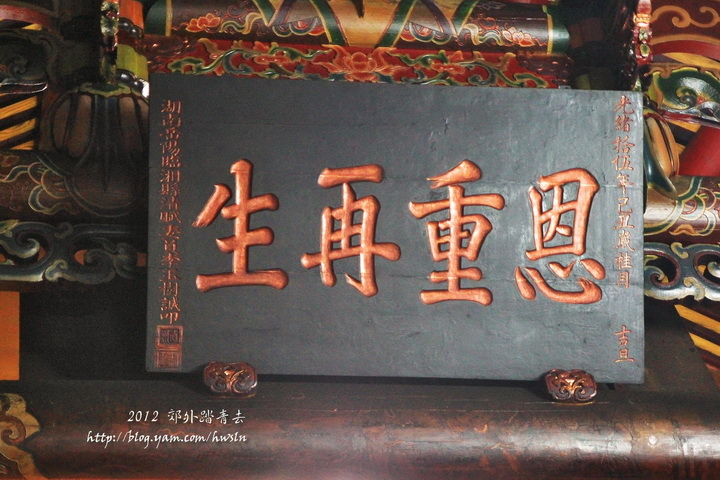 光緒拾伍年己丑歲桂月 吉旦
恩重再生
湖南岳陽臨湘縣
誠叩
2012 郊外踏青去
http://blog.yam.com/hwsln